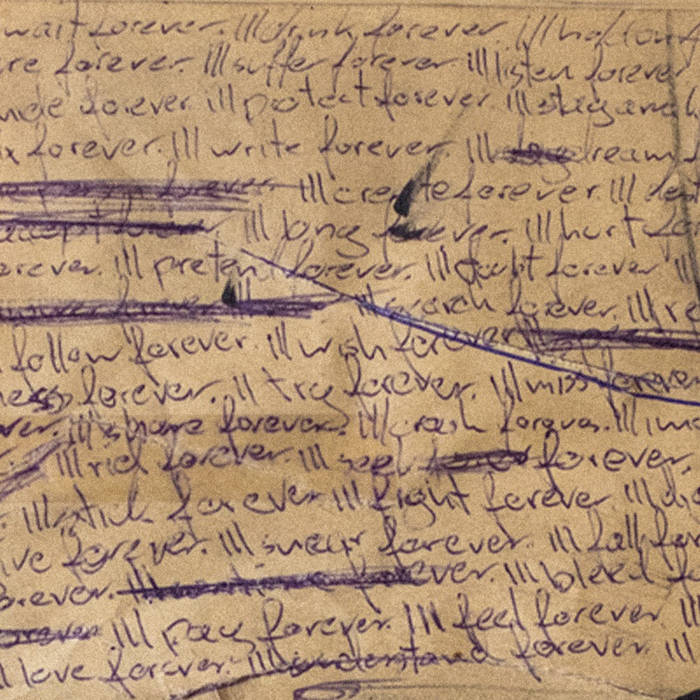 wait forever. I'll drink forever. I'll hallow f
re forever. I'll suffer forever I'll listen forever
forever I'll protect forever. I'll stay awak
x forever. I'll write forever. I'll dream f
forever I'll create forever. I'll den
accept forever I'll long forever. I'll hurt for
orever. I'll pretend forever. I'll doubt forever I'll
forever I'll search forever. I'll re
follow forever. I'll wish forever
forever. I'll try forever. I'll miss forever
ver. I'll share forever. I'll crash forever. I'll
I'll risk forever. I'll seek forever.
I'll stick forever I'll fight forever I'll di
ive forever. I'll swear forever. I'll fall for
orever. forever. I'll bleed f
forever I'll pay forever. I'll feel forever I'll
I'll love forever. I'll understand forever. I'll